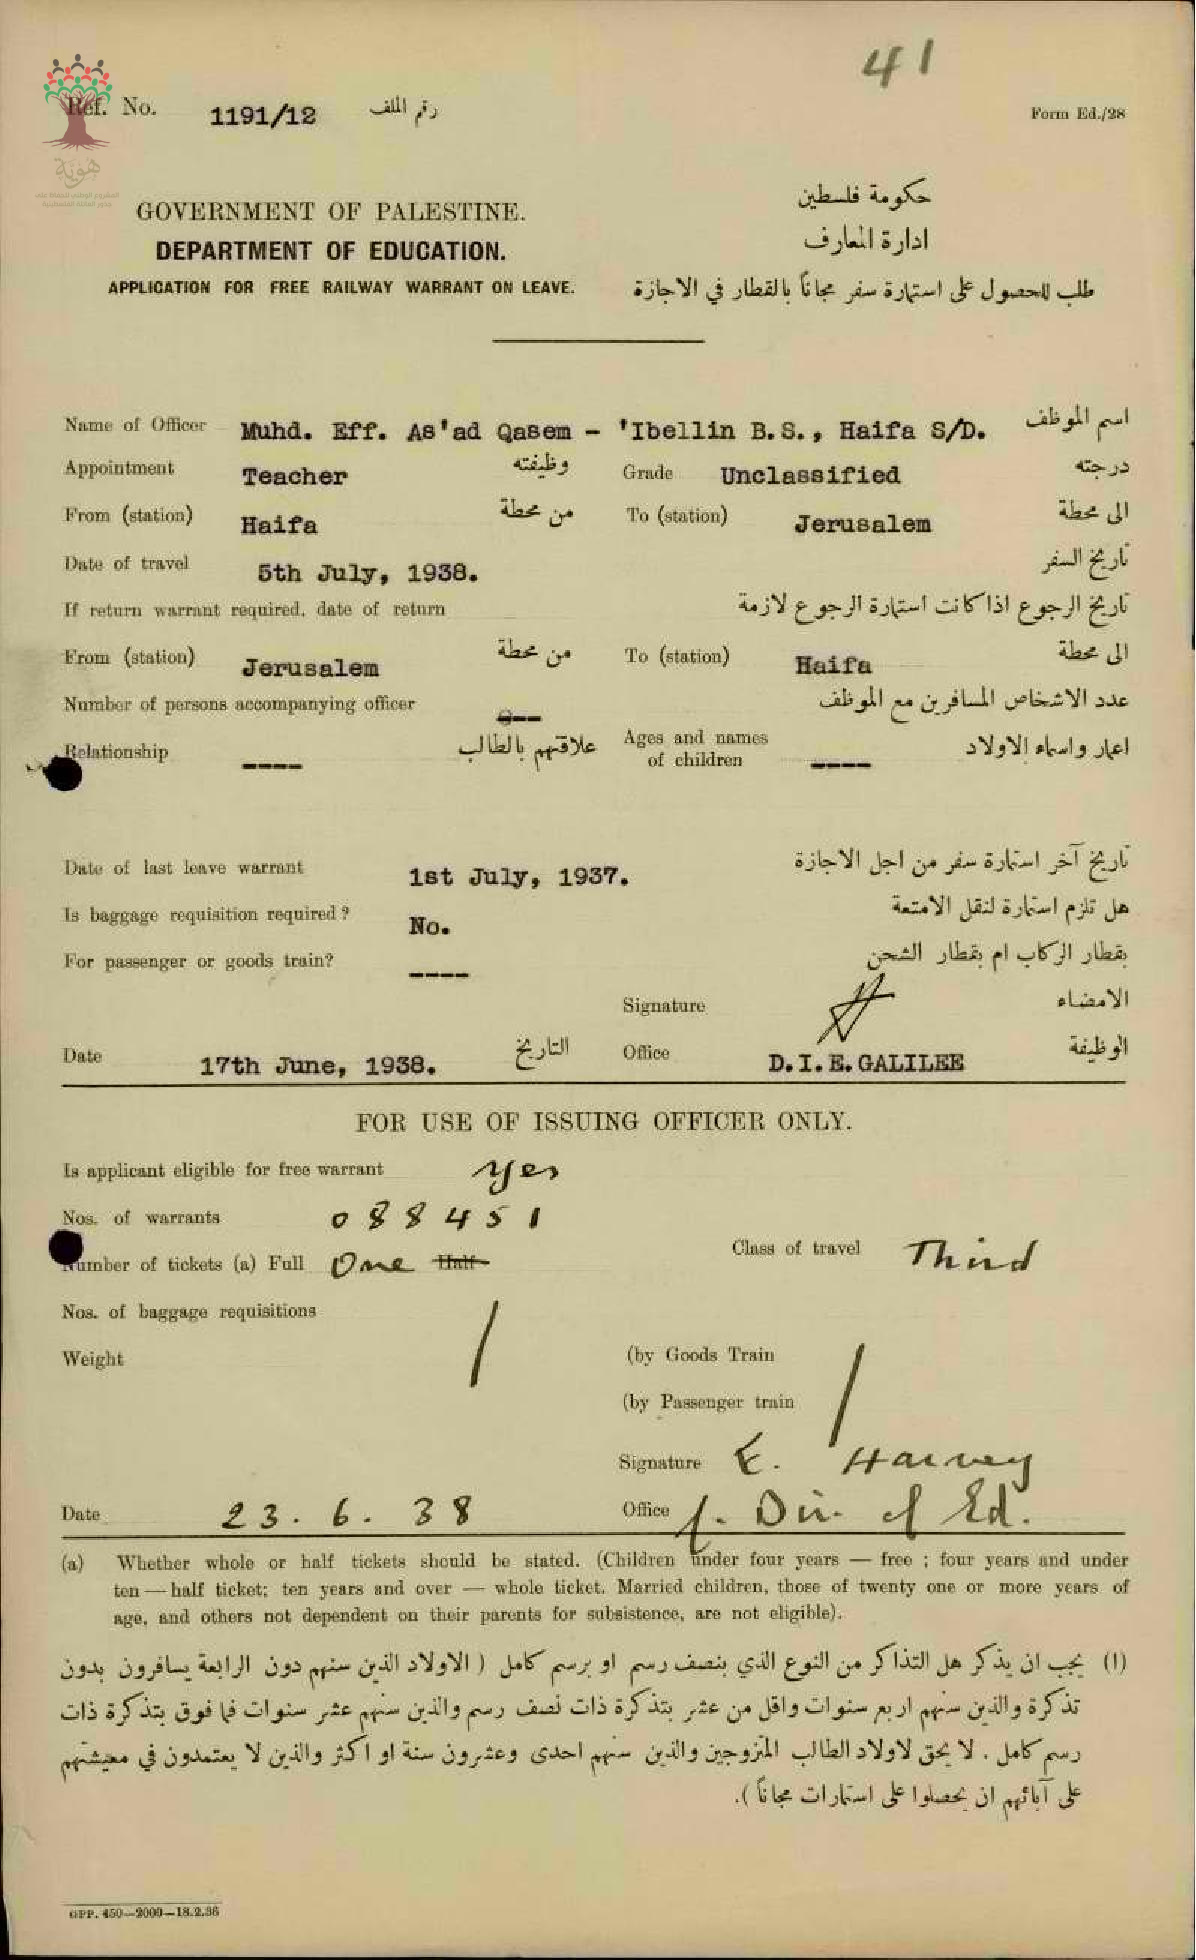 41
Ref. No. 1191/12 رقم الملف
Form Ed./28
هوية
GOVERNMENT OF PALESTINE.
حكومة فلسطين
DEPARTMENT OF EDUCATION.
ادارة المعارف
APPLICATION FOR FREE RAILWAY WARRANT ON LEAVE.
طلب للحصول على استمارة سفر مجاناً بالقطار في الاجازة
Name of Officer Muhd. Eff. As'ad Qasem - 'Ibellin B.S., Haifa S/D. اسم الموظف
Appointment Teacher وظيفته Grade Unclassified درجته
From (station) Haifa من محطة To (station) Jerusalem الى محطة
Date of travel 5th July, 1938. تاريخ السفر
If return warrant required, date of return تاريخ الرجوع اذا كانت استمارة الرجوع لازمة
From (station) Jerusalem من محطة To (station) Haifa الى محطة
Number of persons accompanying officer --- عدد الاشخاص المسافرين مع الموظف
Relationship ---- علاقتهم بالطالب Ages and names of children ---- اعمار واسماء الاولاد
Date of last leave warrant 1st July, 1937. تاريخ آخر استمارة سفر من اجل الاجازة
Is baggage requisition required? No. هل تلزم استمارة لنقل الامتعة
For passenger or goods train? ---- بقطار الركاب ام بقطار الشحن
Signature الامضاء
Date 17th June, 1938. التاريخ Office D.I.E. GALILEE الوظيفة
FOR USE OF ISSUING OFFICER ONLY.
Is applicant eligible for free warrant yes
Nos. of warrants 088451
Number of tickets (a) Full One Half
Class of travel Third
Nos. of baggage requisitions
Weight
(by Goods Train
(by Passenger train
Signature E. Harvey
Date 23.6.38 Office f. Dir. of Ed.
(a) Whether whole or half tickets should be stated. (Children under four years — free ; four years and under
ten — half ticket; ten years and over — whole ticket. Married children, those of twenty one or more years of
age, and others not dependent on their parents for subsistence, are not eligible).
(١) يجب ان يذكر هل التذاكر من النوع الذي بنصف رسم او برسم كامل ( الاولاد الذين سنهم دون الرابعة يسافرون بدون
تذكرة والذين سنهم اربع سنوات واقل من عشر بتذكرة ذات نصف رسم والذين سنهم عشر سنوات فما فوق بتذكرة ذات
رسم كامل . لا يحق لاولاد الطالب المتزوجين والذين سنهم احدى وعشرون سنة او اكثر والذين لا يعتمدون في معيشتهم
على آبائهم ان يحصلوا على استمارات مجاناً ).
GPP. 450—2000—18.2.36